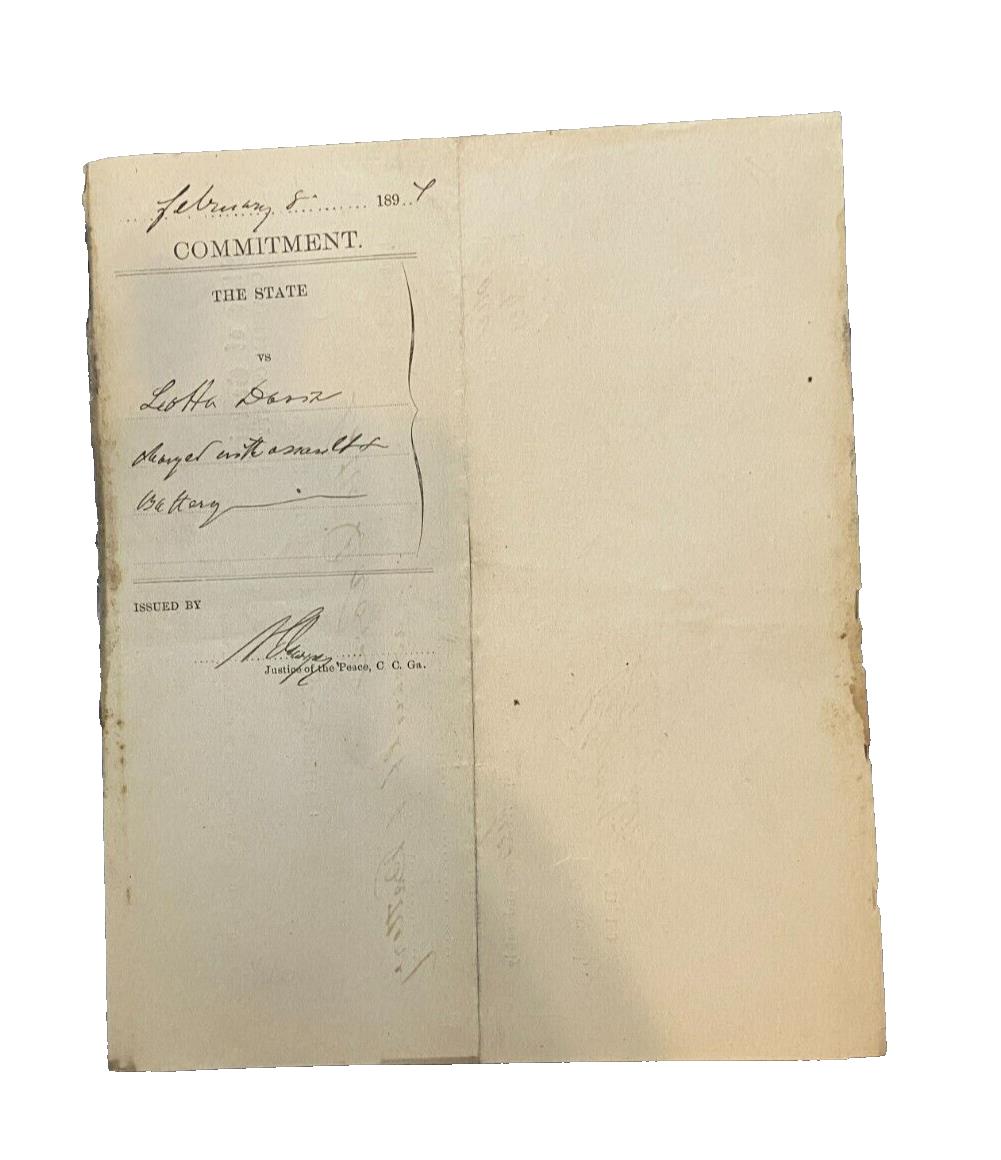 February 8 1897
COMMITMENT.
THE STATE
vs
Davis
charged with assault &
Battery
ISSUED BY
Justice of the Peace, C C. Ga.